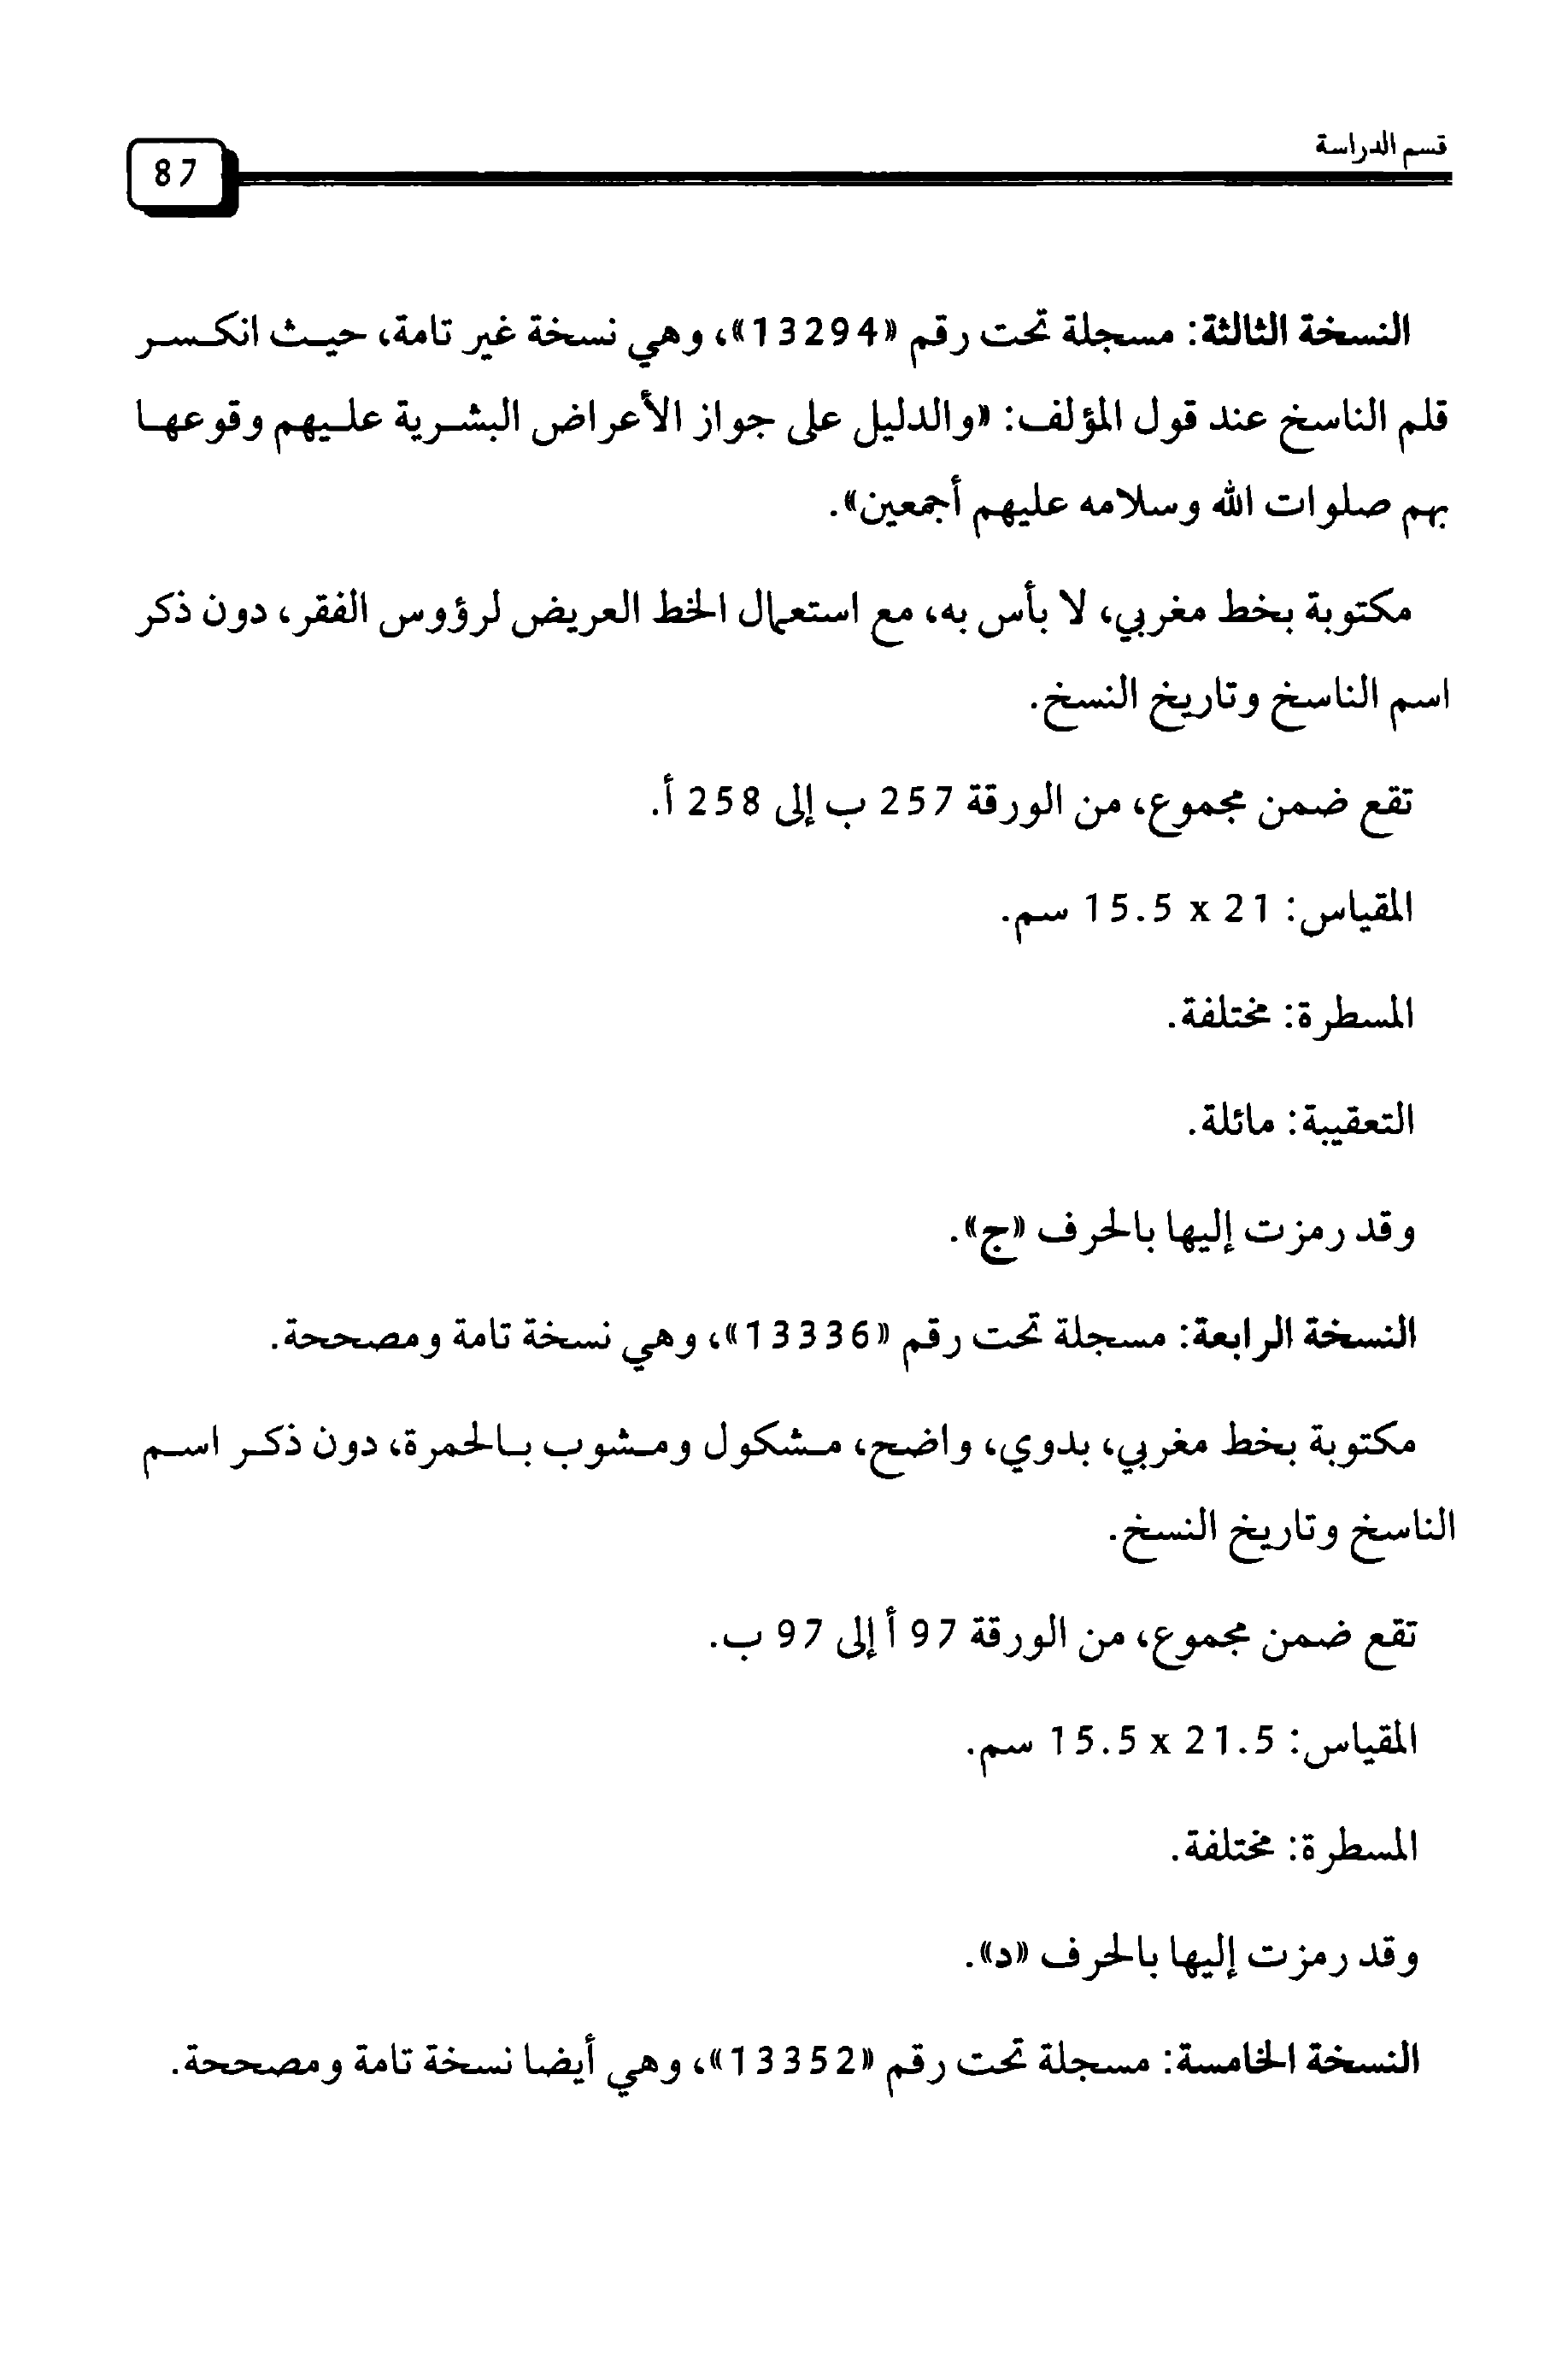 قسم الدراسة
87
النسخة الثالثة: مسجلة تحت رقم «13294»، وهي نسخة غير تامة، حيث انكسر
قلم الناسخ عند قول المؤلف: «والدليل على جواز الأعراض البشرية عليهم وقوعها
بهم صلوات الله وسلامه عليهم أجمعين».
مكتوبة بخط مغربي، لا بأس به، مع استعمال الخط العريض لرؤوس الفقر، دون ذكر
اسم الناسخ وتاريخ النسخ.
تقع ضمن مجموع، من الورقة 257 ب إلى 258 أ.
المقياس: 21 x 15.5 سم.
المسطرة: مختلفة.
التعقيبة: مائلة.
وقد رمزت إليها بالحرف «ج».
النسخة الرابعة: مسجلة تحت رقم «13336»، وهي نسخة تامة ومصححة.
مكتوبة بخط مغربي، بدوي، واضح، مشكول ومشوب بالحمرة، دون ذكر اسم
الناسخ وتاريخ النسخ.
تقع ضمن مجموع، من الورقة 97 أ إلى 97 ب.
المقياس: 21.5 x 15.5 سم.
المسطرة: مختلفة.
وقد رمزت إليها بالحرف «د».
النسخة الخامسة: مسجلة تحت رقم «13352»، وهي أيضا نسخة تامة ومصححة.